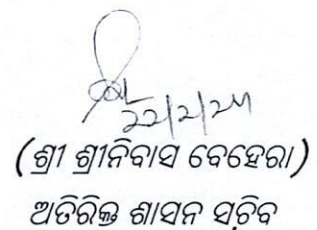 ୨୨/୨/୨୪
(ଶ୍ରୀ ଶ୍ରୀନିବାସ ବେହେରା)
ଅତିରିକ୍ତ ଶାସନ ସଚିବ